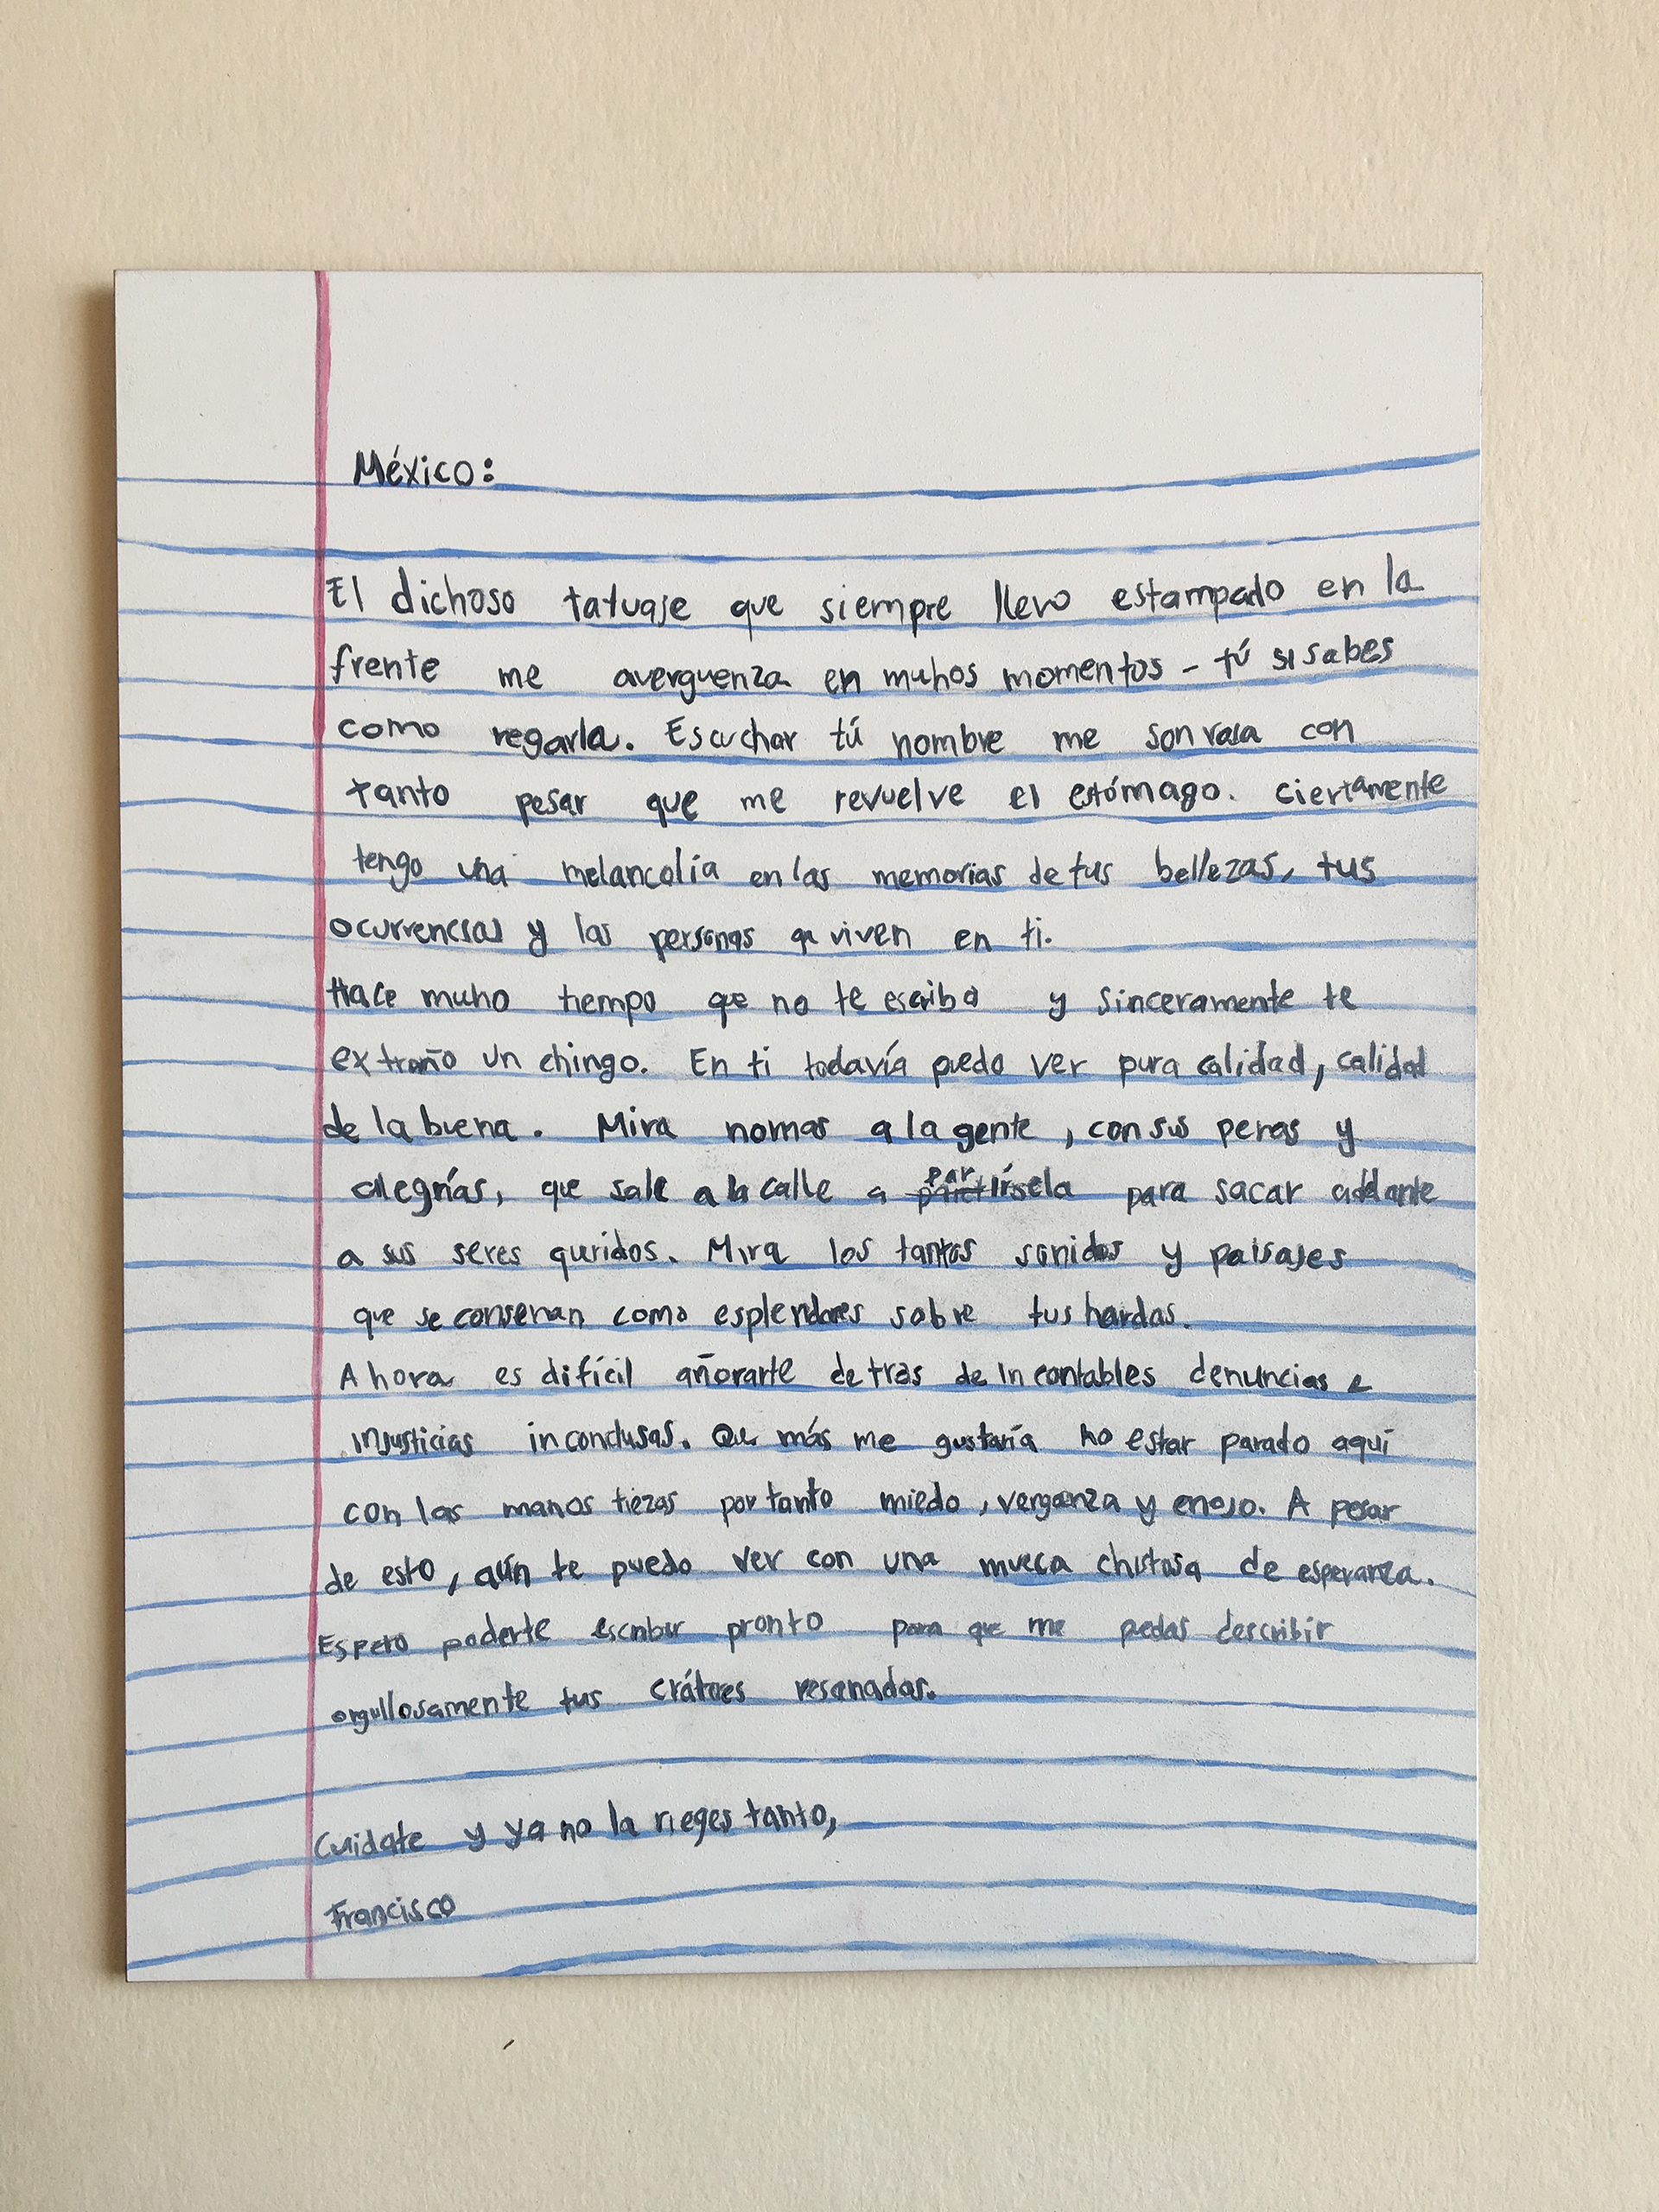 México:
El dichoso tatuaje que siempre llevo estampado en la
frente me averguenza en muhos momentos - tú si sabes
como regarla. Escuchar tú nombre me sonroja con
tanto pesar que me revuelve el estómago. ciertamente
tengo una melancolía en las memorias de tus bellezas, tus
ocurrencias y las personas qu viven en ti.
Hace muho tiempo que no te escribo y sinceramente te
extraño un chingo. En ti todavía puedo ver pura calidad, calidad
de la buena. Mira nomas a la gente, con sus penas y
alegrías, que sale a la calle a partírsela para sacar adelante
a sus seres queridos. Mira los tantos sonidos y paisajes
que se conservan como esplendores sobre tus
Ahora es difícil añorarte detras de incontables denuncias e
injusticias inconclusas. Que más me gustaría no estar parado aquí
con las manos tiezas por tanto miedo, verguenza y enojo. A pesar
de esto, aún te puedo ver con una mueca chistosa de esperanza.
Espero poderte escribir pronto para que me pedas describir
orgullosamente tus cráteres resanadas.
Cuidate y ya no la rieges tanto,
Francisco